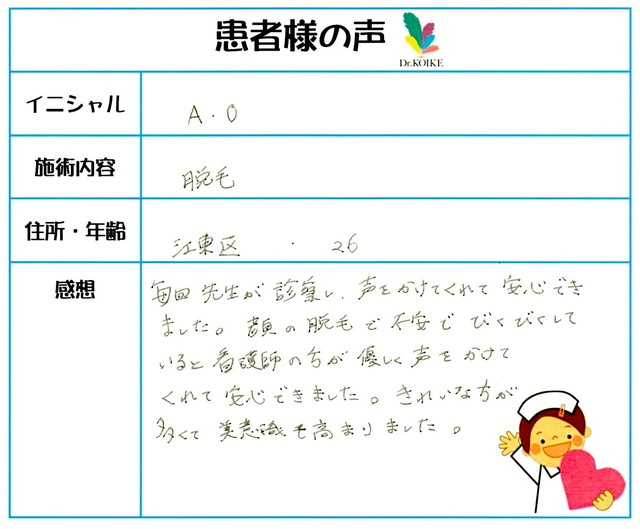 患者様の声
Dr.KOIKE
イニシャル
A.O
施術内容
脱毛
住所・年齢
江東区 ・ 26
感想
毎回先生が診察し、声をかけてくれて安心でき
ました。顔の脱毛で不安でびくびくして
いると看護師の方が優しく声をかけて
くれて安心できました。きれいな方が
多くて美意識も高まりました。